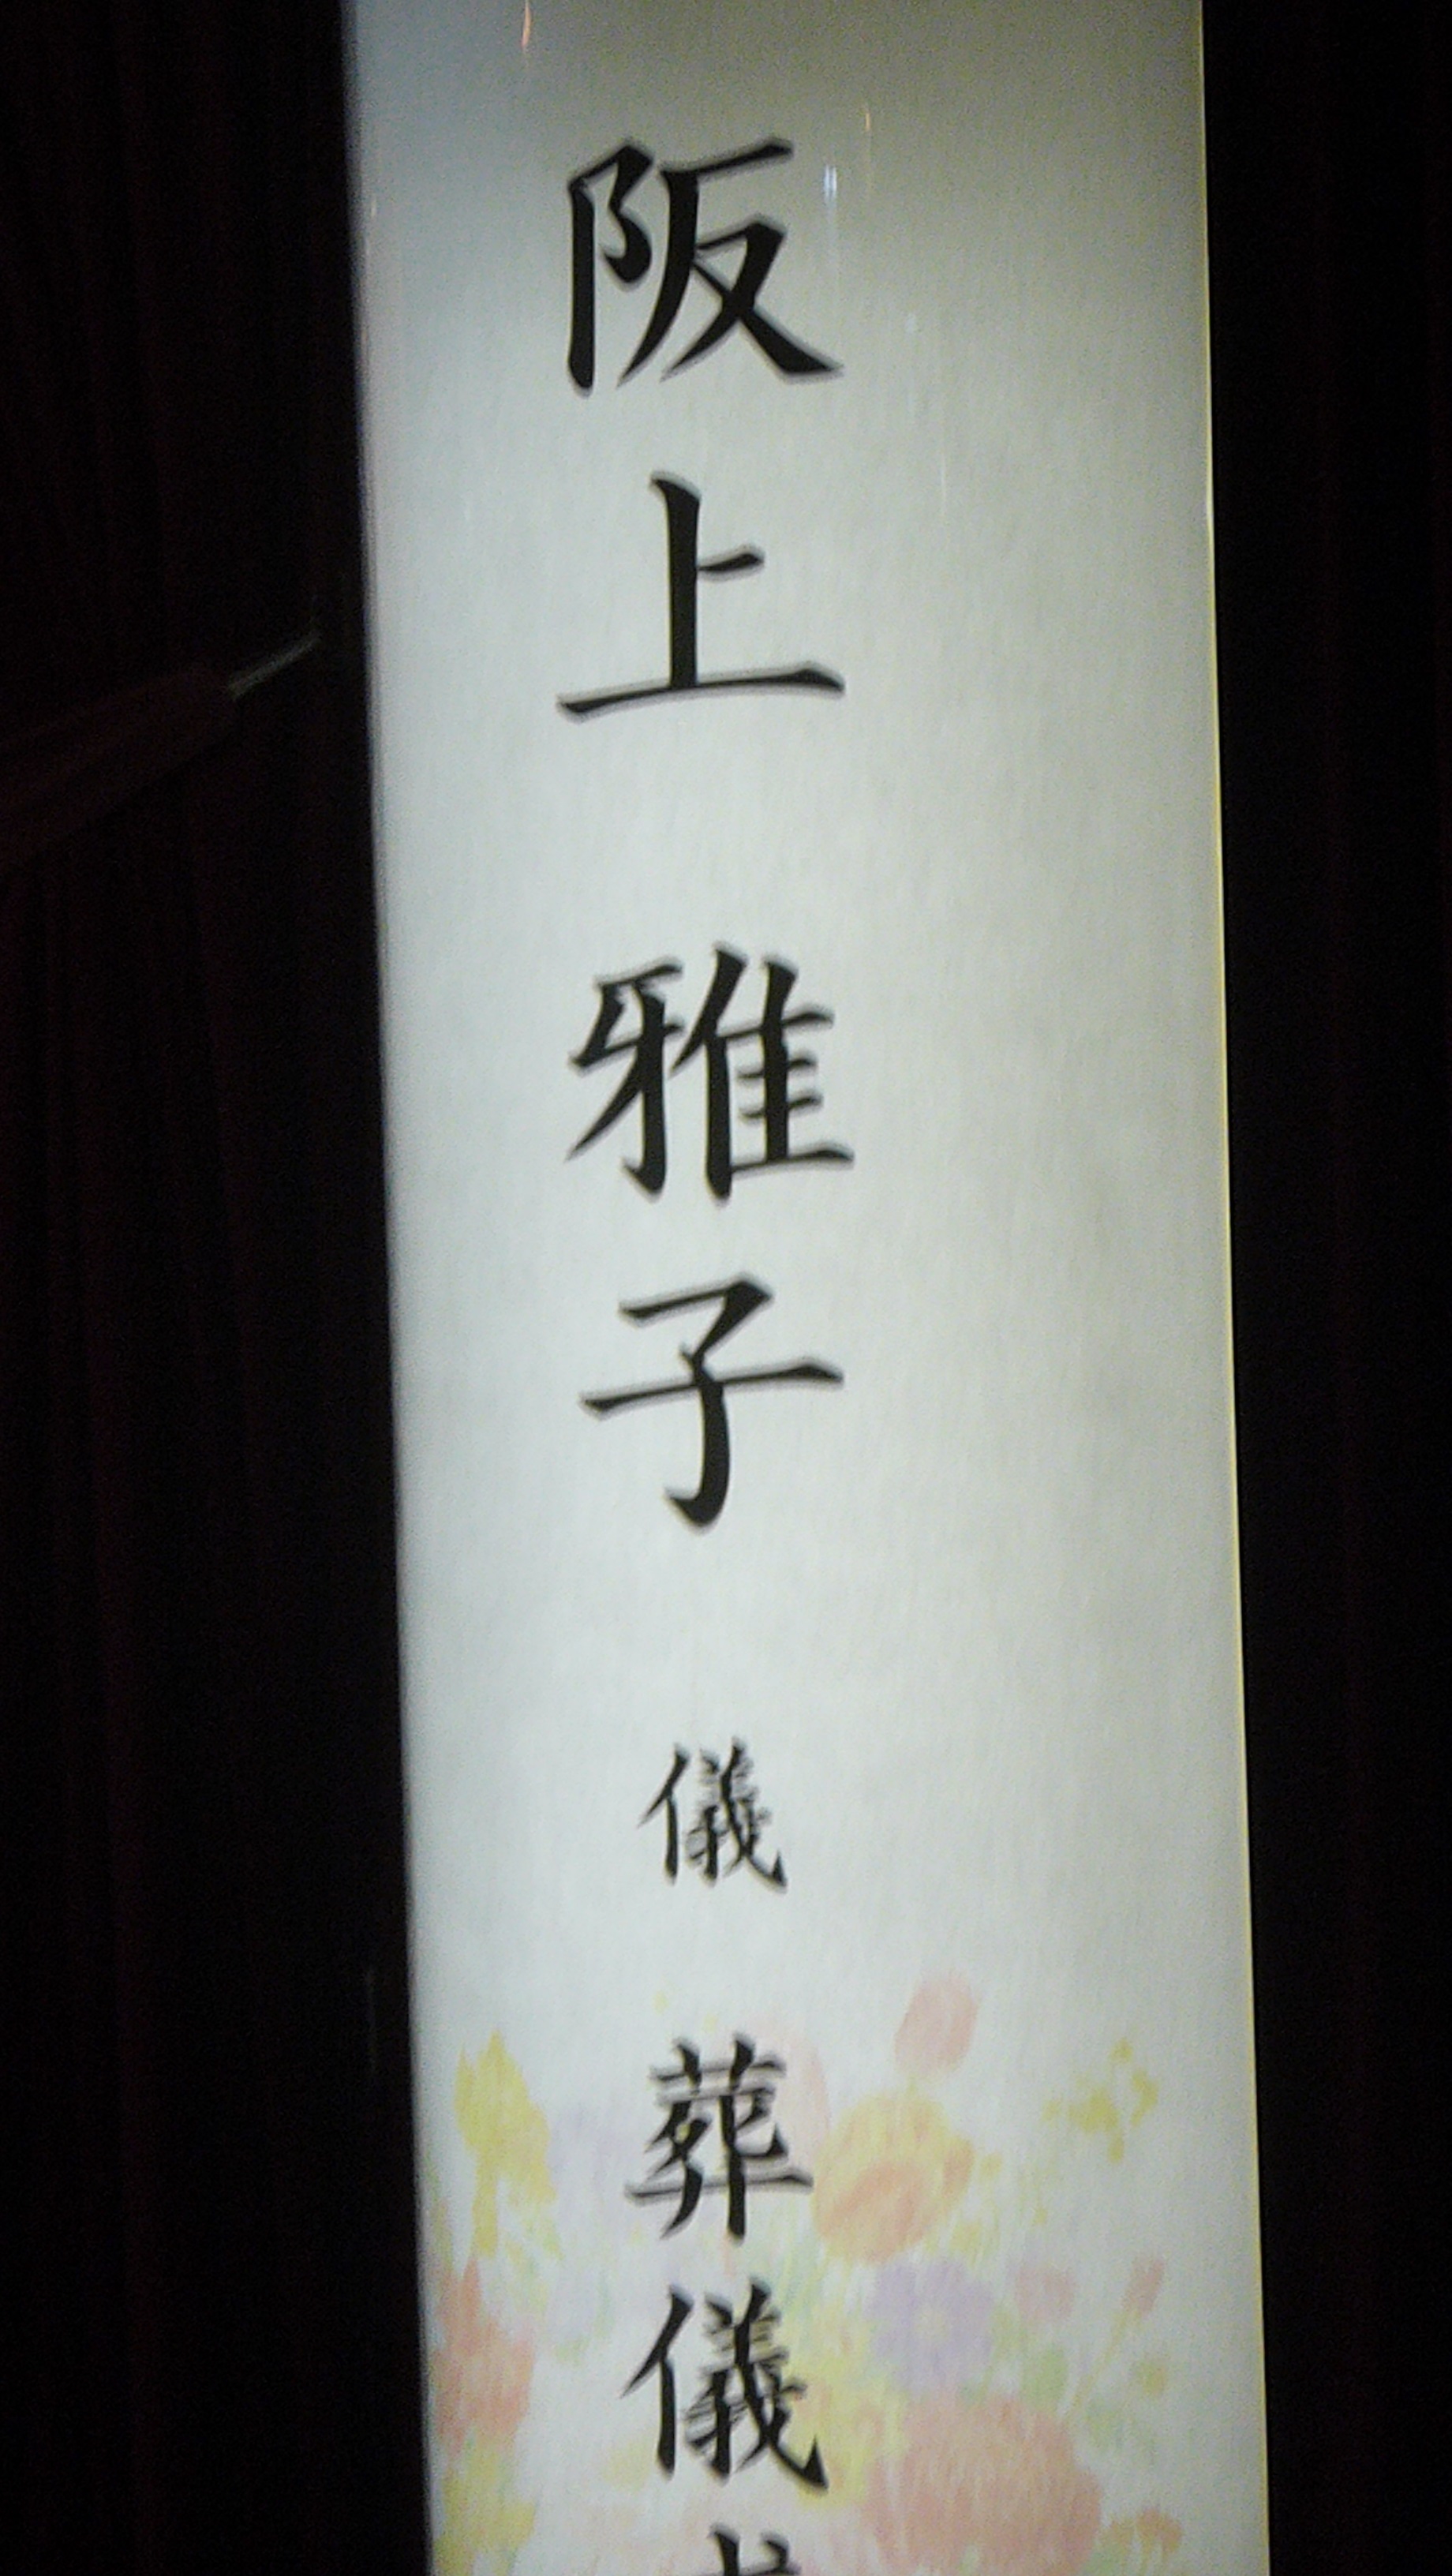 阪上 雅子 儀 葬儀